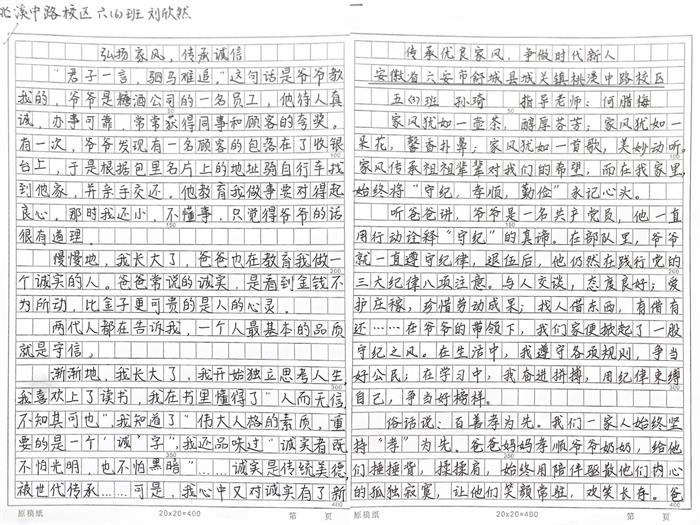 北溪中路校区六(6)班 刘欣然
弘扬家风，传承诚信
“君子一言，驷马难追，”这句话是爷爷教
我的，爷爷是糖酒公司的一名员工，他待人真
诚，办事可靠，常常获得同事和顾客的夸奖。
有一次，爷爷发现有一名顾客的包落在了收银
台上，于是根据包里名片上的地址骑自行车找
到他家，并亲手交还，他教育我做事要对得起
良心，那时我还小，不懂事，只觉得爷爷的话
很有道理。
慢慢地，我长大了，爸爸也在教育我做一
个诚实的人。爸爸常说的诚实，是看到金钱不
为所动，比金子更可贵的是人的心灵。
两代人都在告诉我，一个人最基本的品质
就是守信。
渐渐地，我长大了，我开始独立思考人生，
我喜欢上了读书，我在书里懂得了“人而无信，
不知其可也”，我知道了“伟大人格的素质，重
要的是一个‘诚’字”，我还品味过“诚实者既
不怕光明，也不怕黑暗”……诚实是传统美德，
被世代传承……可是，我心中又对诚实有了新
原稿纸 20×20=400 第 页
传承优良家风，争做时代新人
安徽省六安市舒城县城关镇桃溪中路校区
五(3)班 孙琦 指导老师：何腊梅
家风犹如一壶茶，醇厚芬芳；家风犹如一
朵花，馨香扑鼻；家风犹如一首歌，美妙动听。
家风传承祖祖辈辈对我们的希望，而在我家里，
始终将“守纪，孝顺，勤俭”永记心头。
听爸爸讲，爷爷是一名共产党员，他一直
用行动诠释“守纪”的真谛。在部队里，爷爷
就一直遵守纪律，退伍后，他仍然在践行党的
三大纪律八项注意。与人交谈，态度良好；爱
护庄稼，珍惜劳动成果；找人借东西，有借有
还……在爷爷的带领下，我们家便掀起了一股
守纪之风。在生活中，我遵守各项规则，争当
好公民；在学习中，我奋进拼搏，用纪律束缚
自己，争当好榜样。
俗话说：百善孝为先。我们一家人始终坚
持“孝”为先。爸爸妈妈孝顺爷爷奶奶，给他
们捶捶背，揉揉肩，始终用陪伴驱散他们内心
的孤独寂寞，让他们笑颜常驻，欢笑长存。爸
原稿纸 20×20=400 第 页